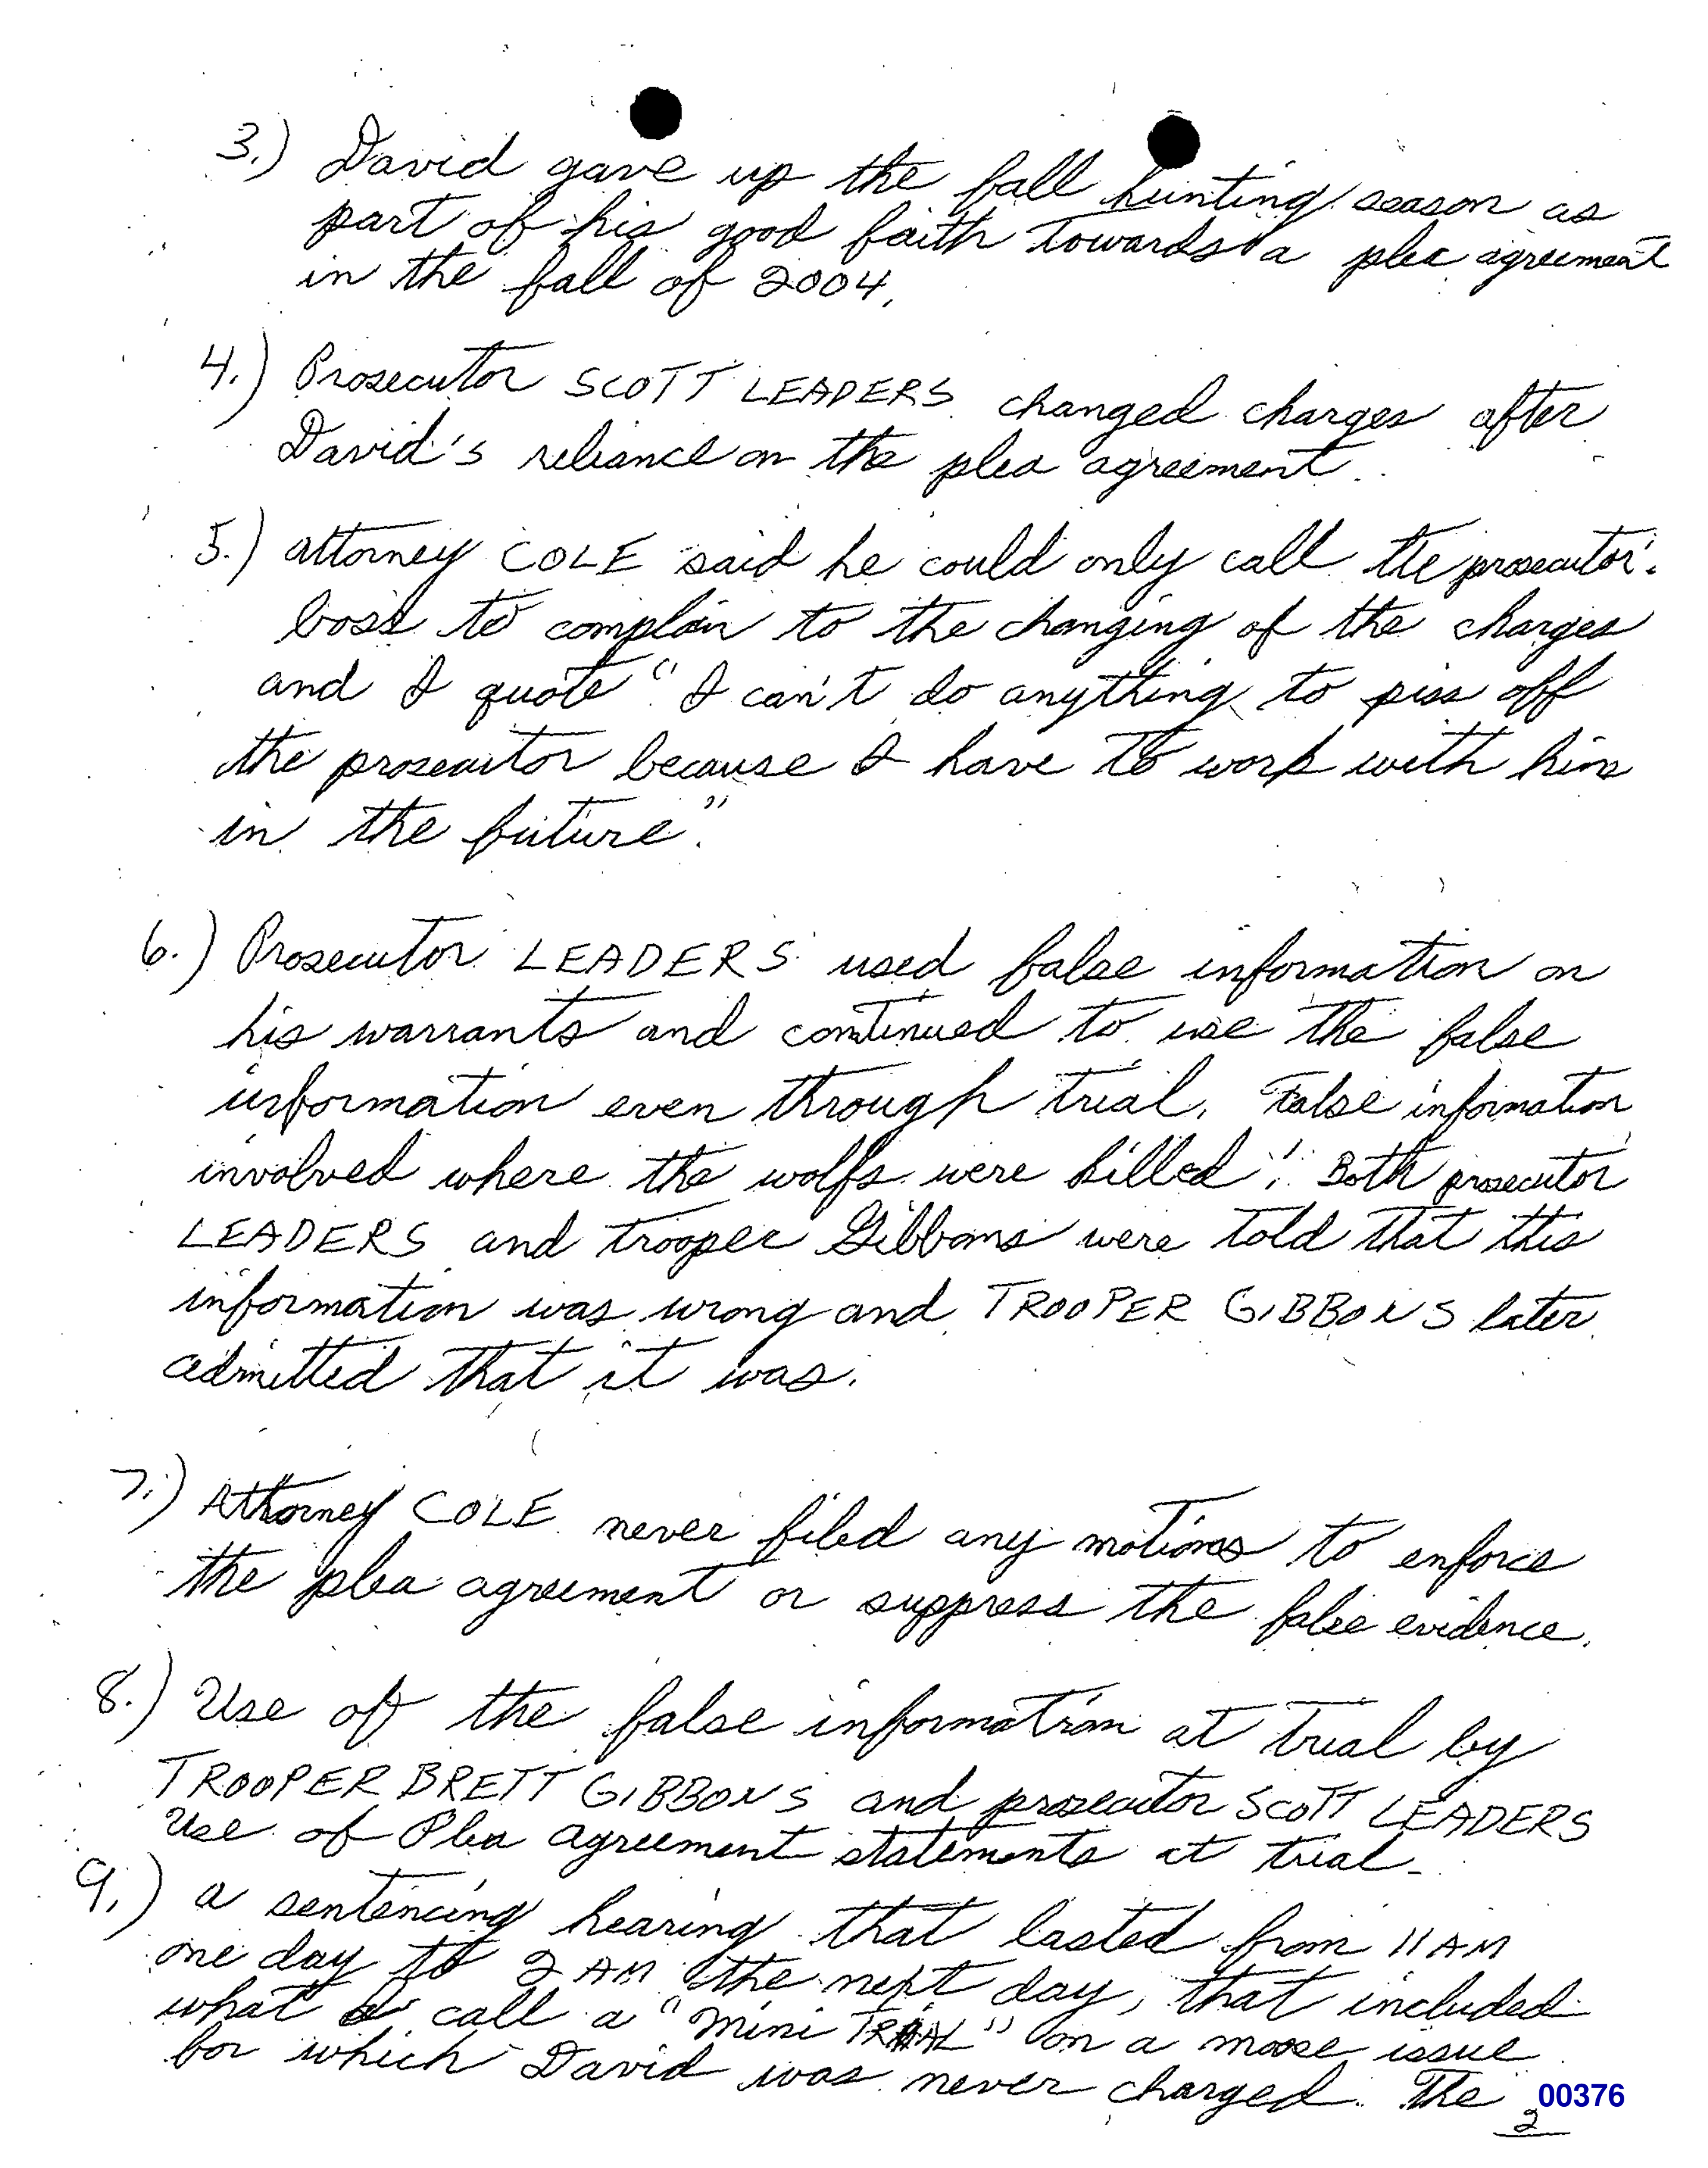 3.) David gave up the fall hunting season as
part of his good faith towards a plea agreement
in the fall of 2004.
4.) Prosecutor SCOTT LEADERS changed charges after
David's reliance on the plea agreement.
5.) Attorney COLE said he could only call the prosecutor'.
boss to complain to the changing of the charges
and I quote "I can't do anything to piss off
the prosecutor because I have to work with him
in the future".
6.) Prosecutor LEADERS used false information on
his warrants and continued to use the false
information even through trial. False information
involved where the wolfs were killed! Both prosecutor
LEADERS and trooper Gibbons were told that this
information was wrong and TROOPER GIBBONS later
admitted that it was.
7.) Attorney COLE never filed any motions to enforce
the plea agreement or suppress the false evidence.
8.) Use of the false information at trial by
TROOPER BRETT GIBBONS and prosecutor SCOTT LEADERS
Use of Plea agreement statements at trial.
9.) A sentencing hearing that lasted from 11 AM
one day to 2 AM the next day, that included
what I call a "mini TRIAL" on a moose issue
for which David was never charged. The
00376
2